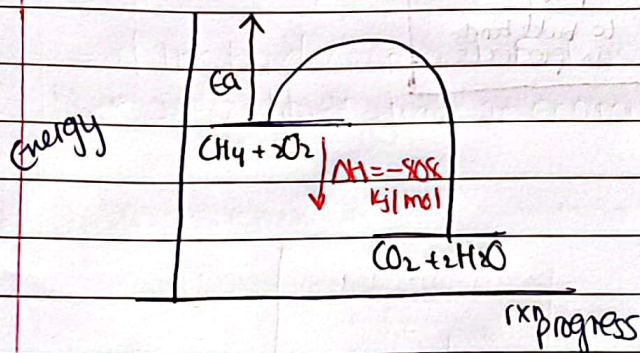 Ea
Energy
CH4 + 2O2
ΔH = -808
kj/mol
CO2 + 2H2O
rxn progress